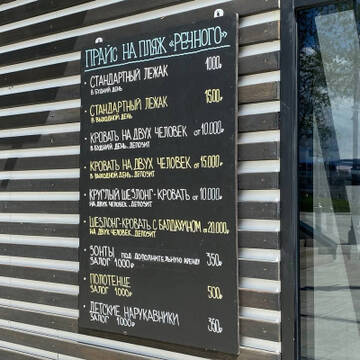 ПРАЙС НА ПЛЯЖ «РЕЧНОГО»
· СТАНДАРТНЫЙ ЛЕЖАК 1000
В БУДНИЙ ДЕНЬ
· СТАНДАРТНЫЙ ЛЕЖАК 1500
В ВЫХОДНОЙ ДЕНЬ
· КРОВАТЬ НА ДВУХ ЧЕЛОВЕК ОТ 10.000₽
В БУДНИЙ ДЕНЬ. ДЕПОЗИТ
· КРОВАТЬ НА ДВУХ ЧЕЛОВЕК ОТ 15.000₽
В ВЫХОДНОЙ ДЕНЬ. ДЕПОЗИТ
· КРУГЛЫЙ ШЕЗЛОНГ-КРОВАТЬ ОТ 10.000₽
НА ДВУХ ЧЕЛОВЕК. ДЕПОЗИТ
· ШЕЗЛОНГ-КРОВАТЬ С БАЛДАХИНОМ ОТ 20.000₽
НА ДВУХ ЧЕЛОВЕК. ДЕПОЗИТ
· ЗОНТЫ ПОД ДОПОЛНИТЕЛЬНУЮ АРЕНДУ 350₽
ЗАЛОГ 1000₽
· ПОЛОТЕНЦЕ 500₽
ЗАЛОГ 1000₽
· ДЕТСКИЕ НАРУКАВНИКИ 350₽
ЗАЛОГ 1000₽